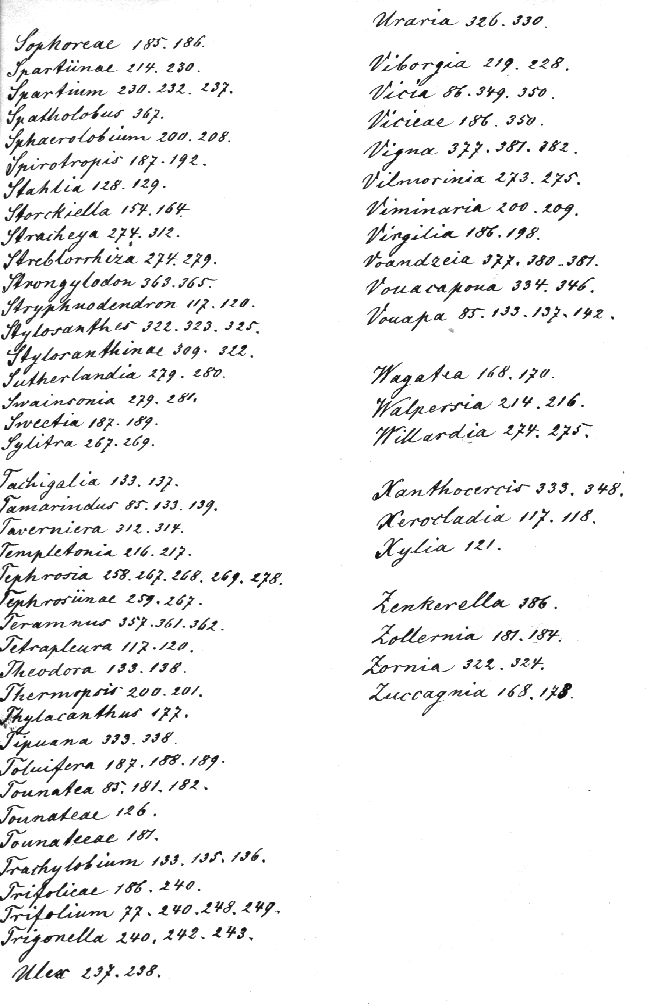 Sophoreae 185. 186.
Spartiinae 214. 230.
Spartium 230. 232. 237.
Spatholobus 367.
Sphaerolobium 200. 208.
Spirotropis 187. 192.
Stahlia 128. 129.
Storckiella 154. 164
Stracheya 274. 312.
Streblorrhiza 274. 279.
Strongylodon 363. 365.
Stryphnodendron 117. 120.
Stylosanthes 322. 323. 325.
Stylosanthinae 309. 322.
Sutherlandia 279. 280.
Swainsonia 279. 281.
Sweetia 187. 189.
Sylitra 267. 269.
Tachigalia 133. 137.
Tamarindus 85. 133. 139.
Taverniera 312. 314.
Templetonia 216. 217.
Tephrosia 258. 267. 268. 269. 278.
Tephrosiinae 259. 267.
Teramnus 357. 361. 362.
Tetrapleura 117. 120.
Theodora 133. 138.
Thermopsis 200. 201.
Thylacanthus 177.
Tipuana 333. 338.
Toluifera 187. 188. 189.
Tounatea 85. 181. 182.
Tounateae 126.
Tounateeae 181.
Trachylobium 133. 135. 136.
Trifolieae 186. 240.
Trifolium 77. 240. 248. 249.
Trigonella 240. 242. 243.
Ulex 237. 238.
Uraria 326. 330.
Viborgia 219. 228.
Vicia 86. 349. 350.
Vicieae 186. 350.
Vigna 377. 381. 382.
Vilmorinia 273. 275.
Viminaria 200. 209.
Virgilia 186. 198.
Voandzeia 377. 380-381.
Vouacapoua 334. 346.
Vouapa 85. 133. 137. 142.
Wagatea 168. 170.
Walpersia 214. 216.
Willardia 274. 275.
Xanthocercis 333. 348.
Xerocladia 117. 118.
Xylia 121.
Zenkerella 386.
Zollernia 181. 184.
Zornia 322. 324.
Zuccagnia 168. 173.